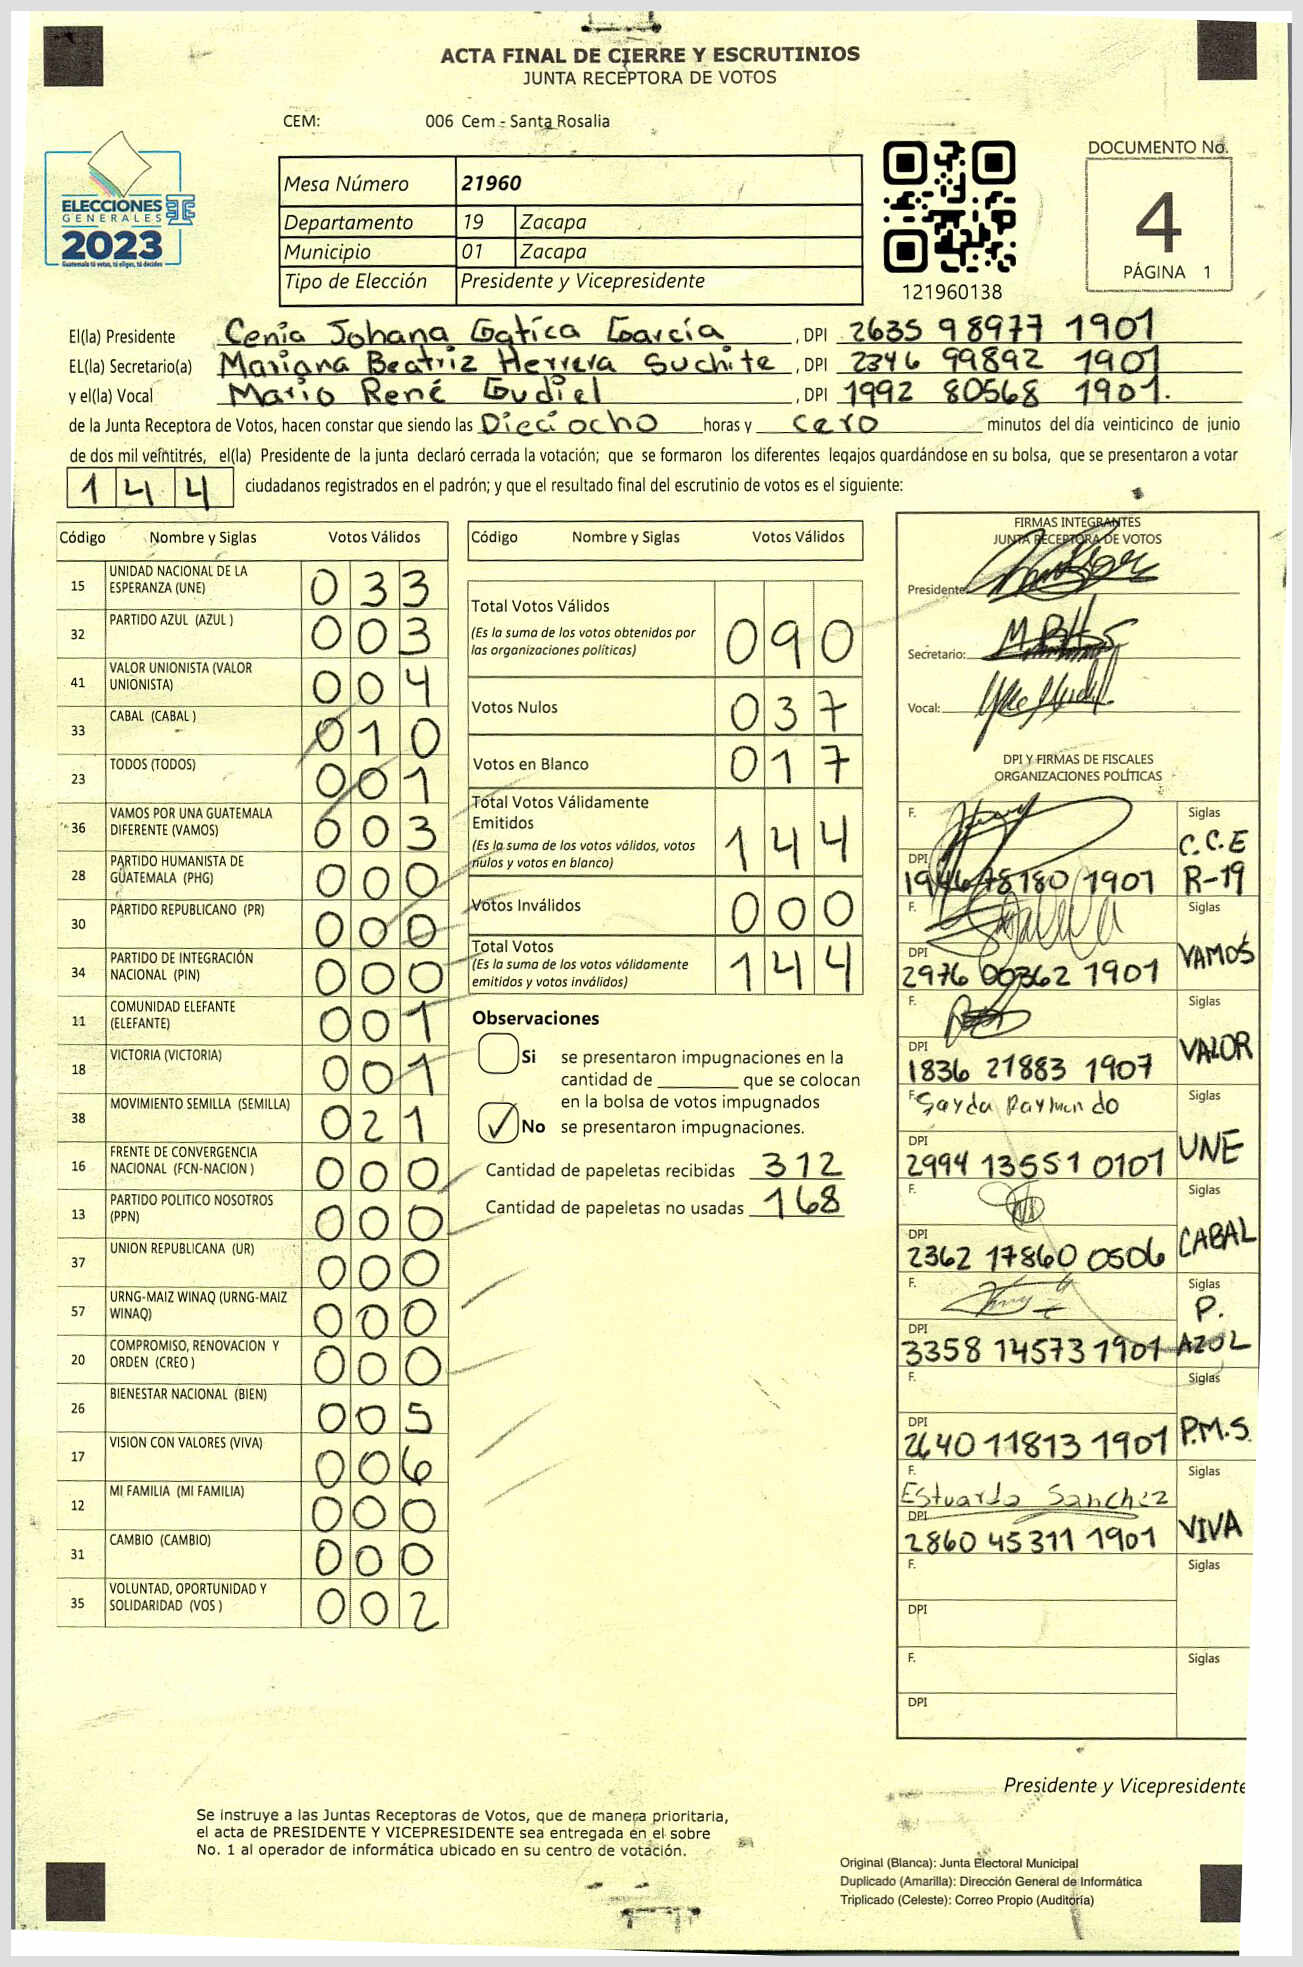 ACTA FINAL DE CIERRE Y ESCRUTINIOS
JUNTA RECEPTORA DE VOTOS
CEM: 006 Cem - Santa Rosalia
ELECCIONES
GENERALES
2023
Guatemala tú votas, tú eliges, tú decides
Mesa Número 21960
Departamento 19 Zacapa
Municipio 01 Zacapa
Tipo de Elección Presidente y Vicepresidente
121960138
DOCUMENTO No.
4
PÁGINA 1
El(la) Presidente Cenia Johana Gatica García, DPI 2635 98977 1901
EL(la) Secretario(a) Mariana Beatriz Herrera Suchite, DPI 2346 99892 1901
y el(la) Vocal Mario René Gudiel, DPI 1992 80568 1901.
de la Junta Receptora de Votos, hacen constar que siendo las Dieciocho horas y cero minutos del día veinticinco de junio
de dos mil veintitrés, el(la) Presidente de la junta declaró cerrada la votación; que se formaron los diferentes legajos guardándose en su bolsa, que se presentaron a votar
144 ciudadanos registrados en el padrón; y que el resultado final del escrutinio de votos es el siguiente:
Código Nombre y Siglas Votos Válidos
15 UNIDAD NACIONAL DE LA ESPERANZA (UNE) 033
32 PARTIDO AZUL (AZUL ) 003
41 VALOR UNIONISTA (VALOR UNIONISTA) 004
33 CABAL (CABAL ) 010
23 TODOS (TODOS) 001
36 VAMOS POR UNA GUATEMALA DIFERENTE (VAMOS) 003
28 PARTIDO HUMANISTA DE GUATEMALA (PHG) 000
30 PARTIDO REPUBLICANO (PR) 000
34 PARTIDO DE INTEGRACIÓN NACIONAL (PIN) 000
11 COMUNIDAD ELEFANTE (ELEFANTE) 001
18 VICTORIA (VICTORIA) 001
38 MOVIMIENTO SEMILLA (SEMILLA) 021
16 FRENTE DE CONVERGENCIA NACIONAL (FCN-NACION ) 000
13 PARTIDO POLITICO NOSOTROS (PPN) 000
37 UNION REPUBLICANA (UR) 000
57 URNG-MAIZ WINAQ (URNG-MAIZ WINAQ) 000
20 COMPROMISO, RENOVACION Y ORDEN (CREO ) 000
26 BIENESTAR NACIONAL (BIEN) 005
17 VISION CON VALORES (VIVA) 006
12 MI FAMILIA (MI FAMILIA) 000
31 CAMBIO (CAMBIO) 000
35 VOLUNTAD, OPORTUNIDAD Y SOLIDARIDAD (VOS ) 002
Código Nombre y Siglas Votos Válidos
Total Votos Válidos 090
(Es la suma de los votos obtenidos por
las organizaciones políticas)
Votos Nulos 037
Votos en Blanco 017
Total Votos Válidamente
Emitidos 144
(Es la suma de los votos válidos, votos
nulos y votos en blanco)
Votos Inválidos 000
Total Votos 144
(Es la suma de los votos válidamente
emitidos y votos inválidos)
Observaciones
Si se presentaron impugnaciones en la
cantidad de ________ que se colocan
en la bolsa de votos impugnados
✓ No se presentaron impugnaciones.
Cantidad de papeletas recibidas 312
Cantidad de papeletas no usadas 168
FIRMAS INTEGRANTES
JUNTA RECEPTORA DE VOTOS
Presidente:
Secretario:
Vocal:
DPI Y FIRMAS DE FISCALES
ORGANIZACIONES POLÍTICAS
F. Siglas
C.C.E
DPI 78180 1901 R-19
F. Siglas
DPI VAMOS
2976 00362 1901
F. Siglas
DPI VALOR
1836 21883 1907
F. Sayda Raymundo Siglas
DPI UNE
2994 13551 0101
F. Siglas
DPI CABAL
2362 17860 0506
F. Siglas
P.
DPI AZUL
3358 14573 1901
F. Siglas
DPI P.M.S.
2640 11813 1901
F. Siglas
Estuardo Sanchez
DPI VIVA
2860 45311 1901
F. Siglas
DPI
F. Siglas
DPI
Presidente y Vicepresidente
Se instruye a las Juntas Receptoras de Votos, que de manera prioritaria,
el acta de PRESIDENTE Y VICEPRESIDENTE sea entregada en el sobre
No. 1 al operador de informática ubicado en su centro de votación.
Original (Blanca): Junta Electoral Municipal
Duplicado (Amarilla): Dirección General de Informática
Triplicado (Celeste): Correo Propio (Auditoría)